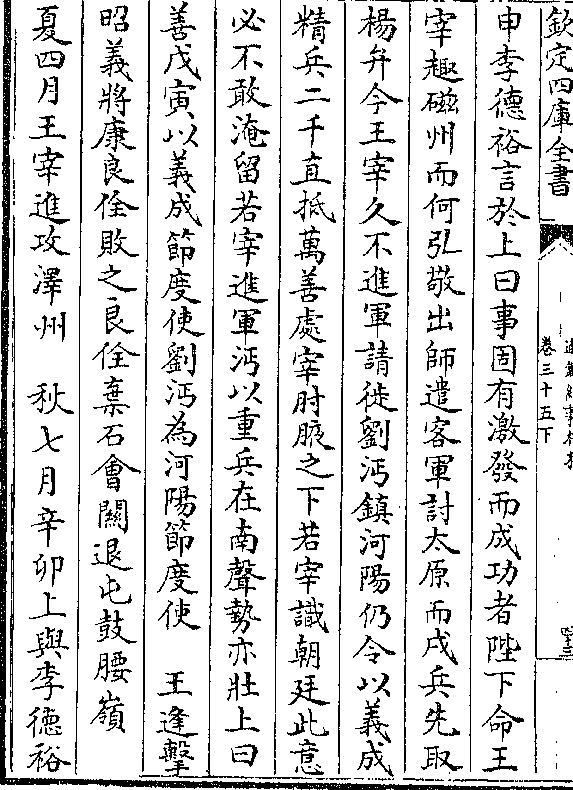 欽定四庫全書
卷三十五下
申李德裕言於上曰事固有激發而成功者陛下命王
宰趣磁州而何弘敬出師遣客軍討太原而戍兵先取
楊弁今王宰久不進軍請徙劉沔鎮河陽仍令以義成
精兵二千直抵萬善處宰肘腋之下若宰識朝廷此意
必不敢淹留若宰進軍沔以重兵在南聲勢亦壯上曰
善戊寅以義成節度使劉沔為河陽節度使　王逢擊
昭義將康良佺敗之良佺棄石會關退屯鼓腰嶺
夏四月王宰進攻澤州　秋七月辛卯上與李德裕